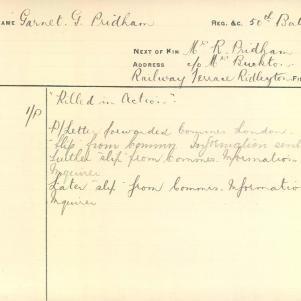 NAME Garnet. G. Pridham REG. &C. 50th Bat
NEXT OF KIN Mr R. Pridham
ADDRESS c/o Mrs Buxton
Railway Terrace Ridleyton
1/P "Killed in Action".
P/Letter forwarded Commes London.
"Slip" from Commn Information sent
Further "slip" from Commes. Information
Inquirer
Later "slip" from Commis. Information
Inquirer